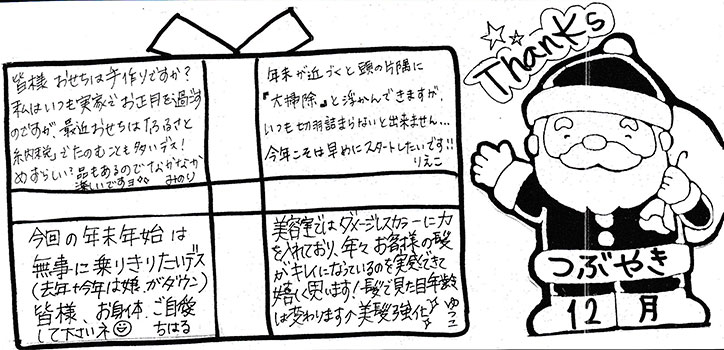 皆様 おせちは手作りですか?
私はいつも実家でお正月を過す
のですが、最近おせちは「ふるさと
納税」でたのむことも多いデス!
めずらしい?品もあるのでなかなか
楽しいですヨ みのり
年末が近づくと頭の片隅に
『大掃除』と浮かんできますが、
いつも切羽詰まらないと出来ません…
今年こそは早めにスタートしたいです!!
りえこ
今回の年末年始は
無事に乗りきりたいデス
(去年・今年は娘がダウン)
皆様、お身体ご自愛
して下さいネ ちはる
美容室ではダメージレスカラーに力
を入れており、年々お客様の髪
がキレイになっているのを実感できて
嬉しく思います!髪で見た目年齢
は変わります 美髪強化 ゆつこ
Thanks
つぶやき
12月